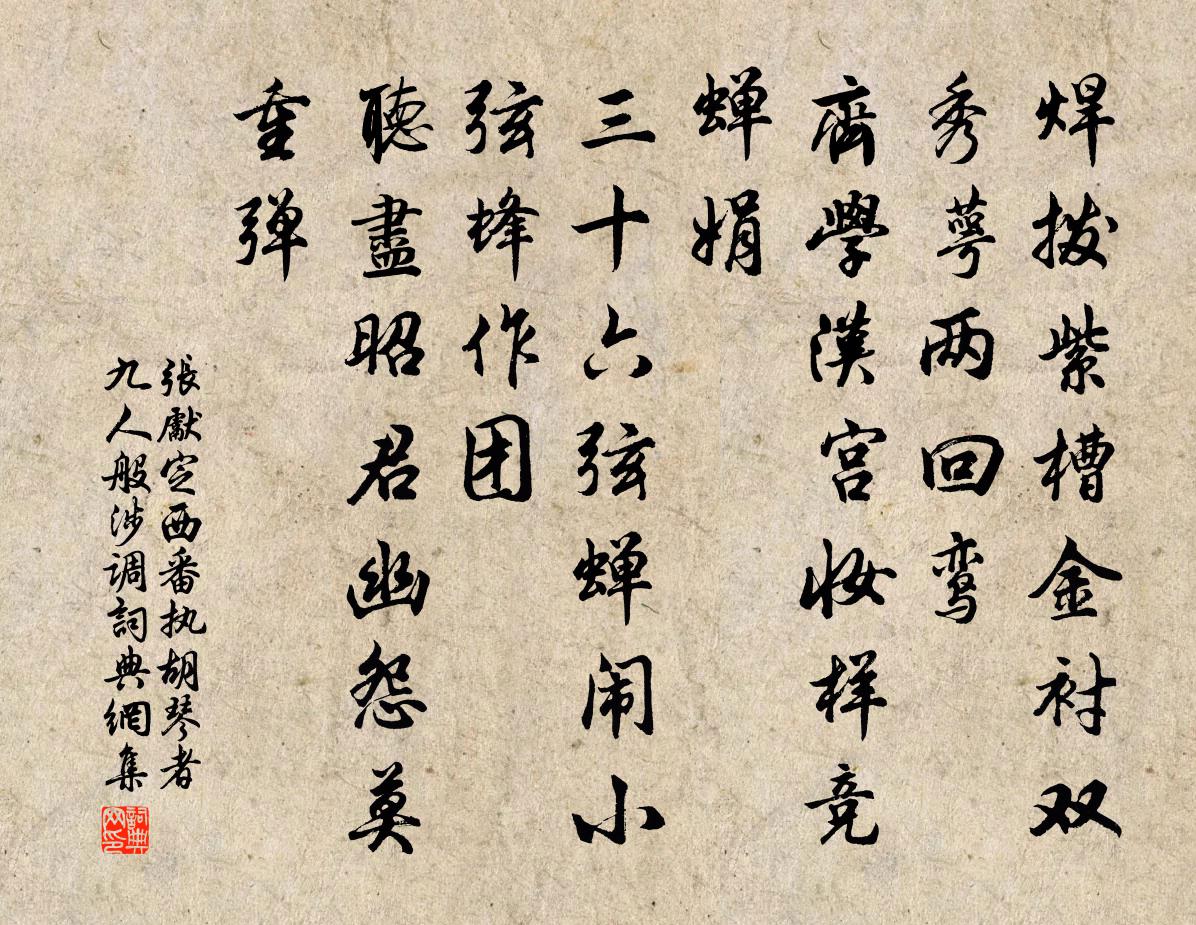 焊拨紫槽金衬双
秀萼两回鸾
齊學漢宫妆样竞
蝉娟
三十六弦蝉闹小
弦蜂作团
聽盡昭君幽怨莫
重弹
張獻定西番执胡琴者
九人般涉调詞典網集
詞典
网印